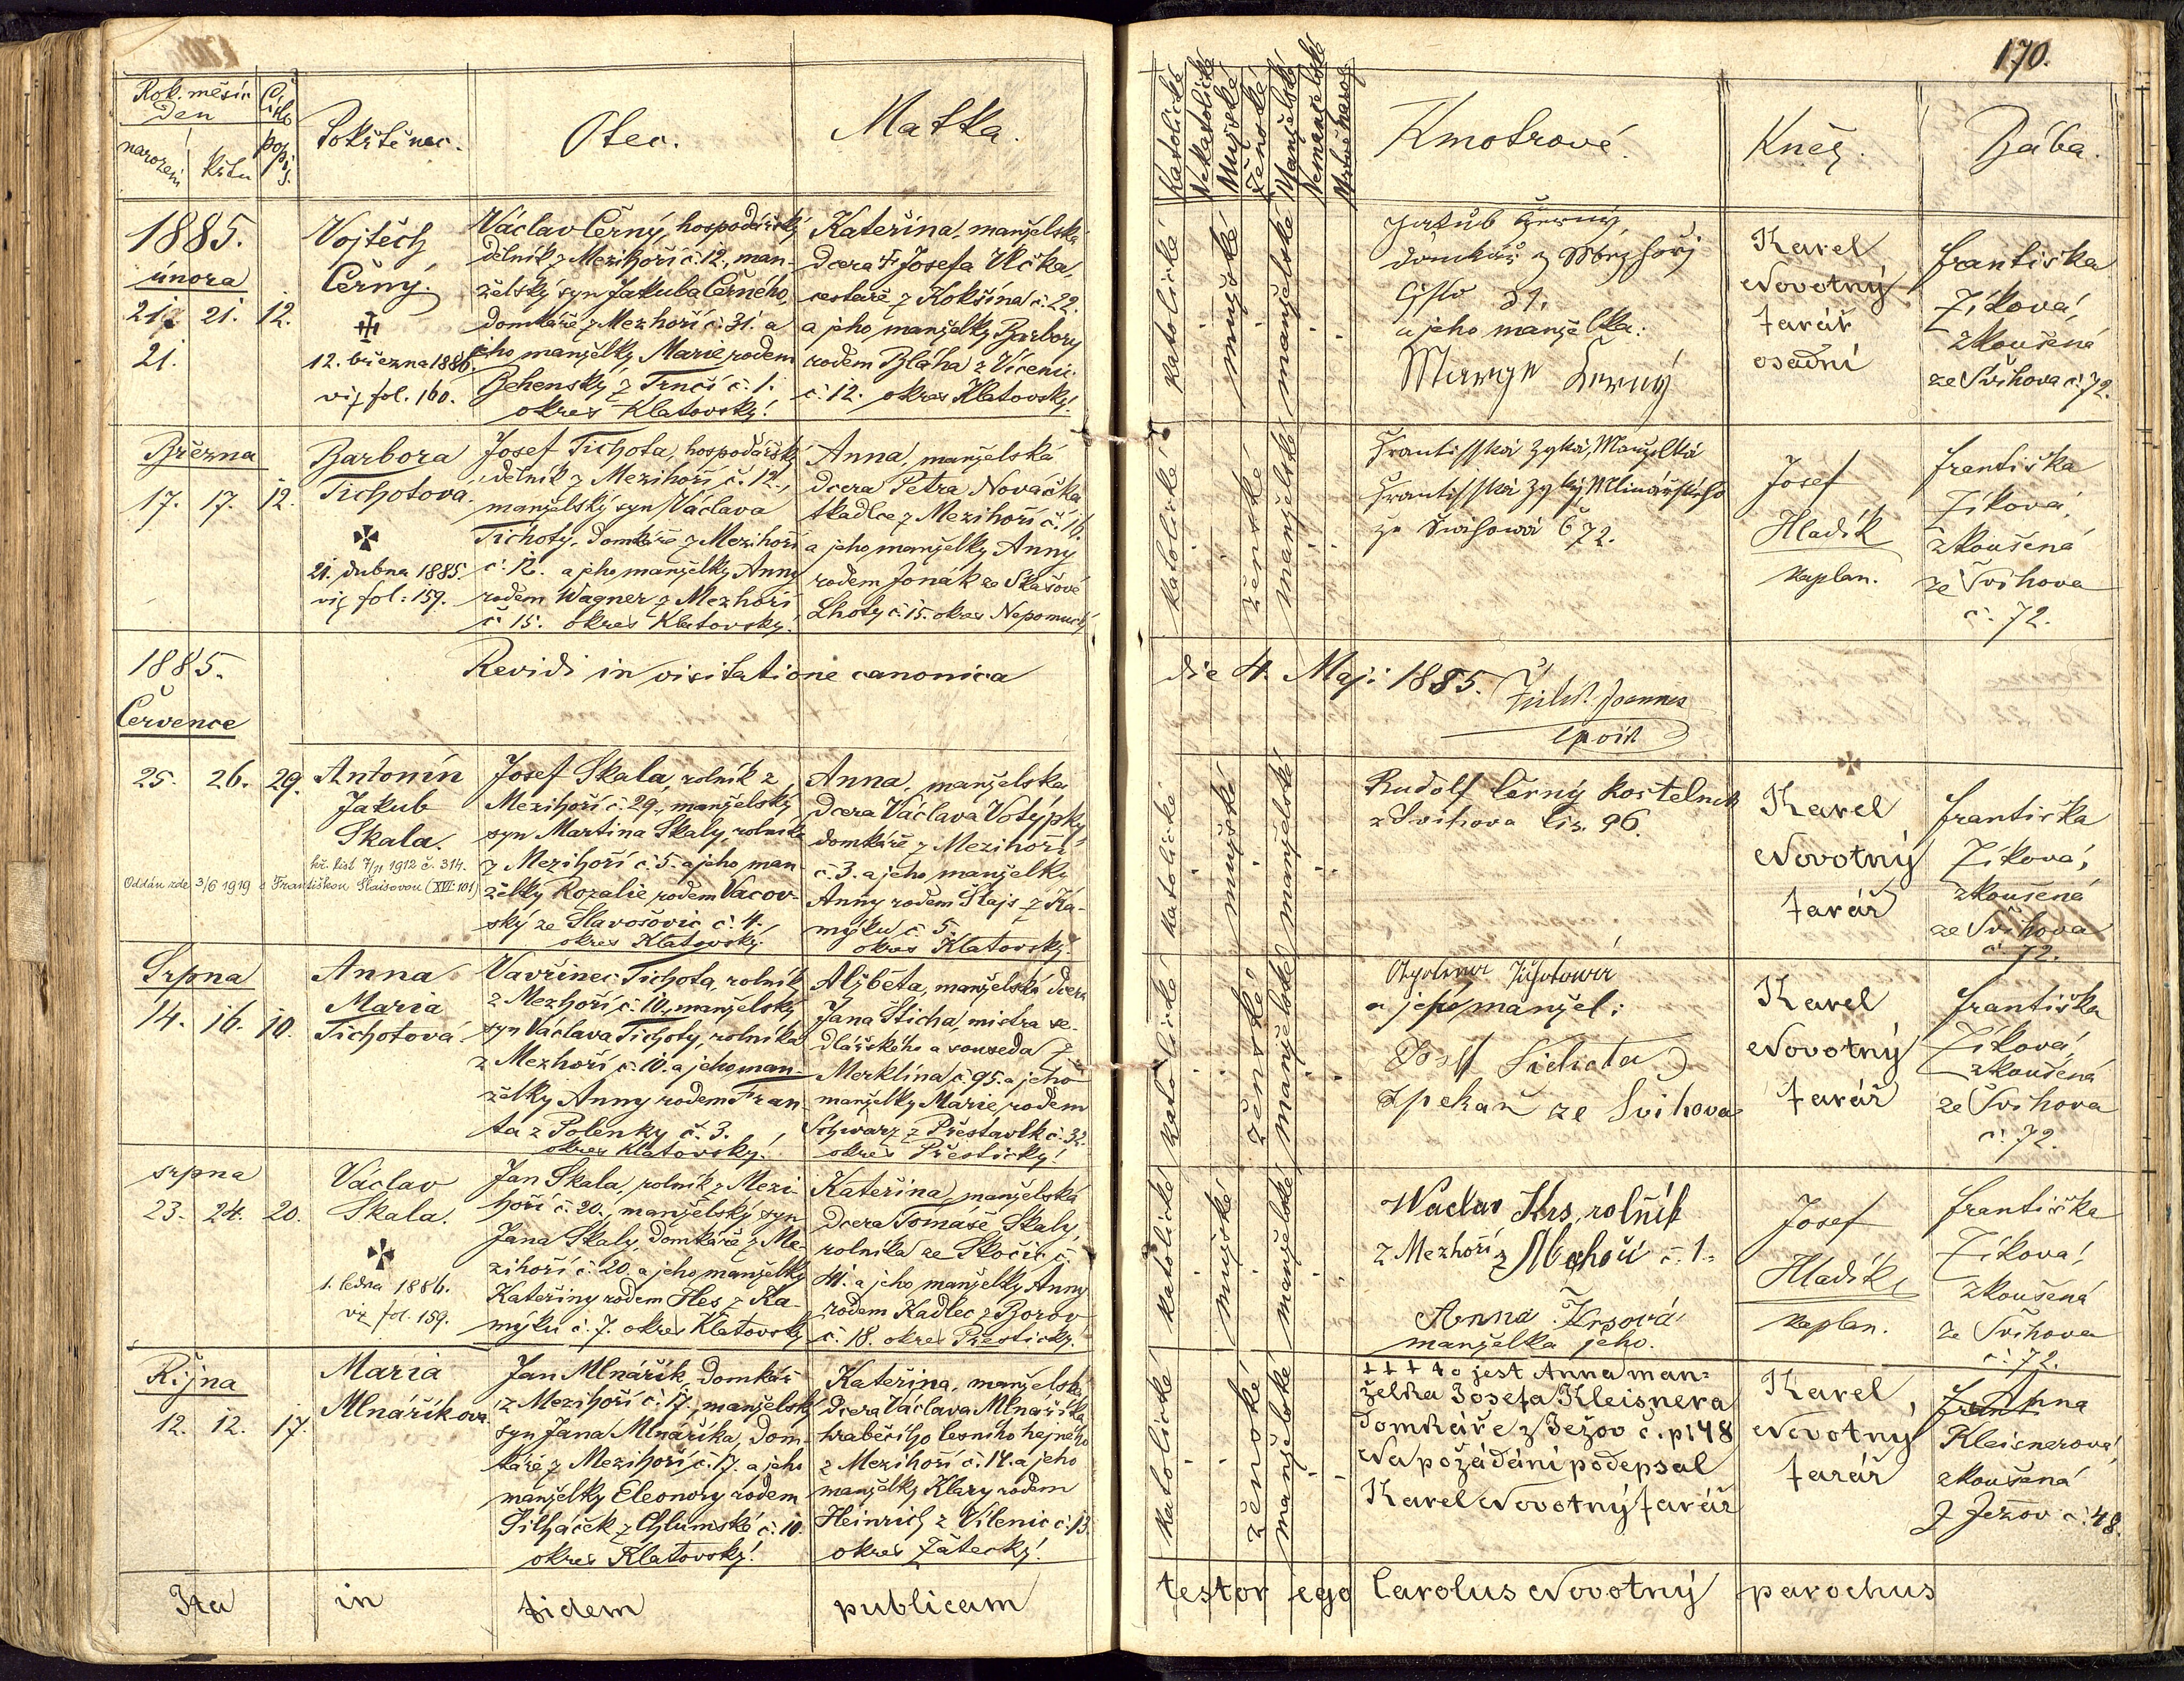 170.
Rok. měsíc
Den
narození
křtu
Číslo
popis.
Pokřtěnec.
Otec.
Matka.
Katolické
Nekatolické
Mužské
Ženské
Manželské
Nemanželské
Kmotrové.
Kněz.
Bába.
1885.
února
21. 21. 12.
21.
Vojtěch
Černý.
12. března 1886.
viz fol. 160.
Václav Černý, hospodářský
dělník z Mezihoří č. 12., man-
želský syn Jakuba Černého,
domkáře z Mezhoří č. 31. a
jeho manželky Marie rodem
Behenský z Trnčí č. 1.
okres Klatovský!
Kateřina, manželská
dcera † Josefa Vlčka,
cestáře z Kokšína č. 22.
a jeho manželky Barbory
rodem Bláha z Vícenic
č. 12. okres Klatovský!
katolické
mužské
manželské
Jakub Černý
domkář z Mezhoří
Číslo 31.
a jeho manželka:
Marye Černý
Karel
Novotný
farář
osadní
Františka
Zíková,
zkoušená
ze Švihova č. 72.
Března
17. 17. 12.
Barbora
Tichotova.
21. dubna 1885.
viz fol. 159.
Josef Tichota, hospodářský
dělník z Mezihoří č. 12.,
manželský syn Václava
Tichoty, domkáře z Mezihoří
č. 12. a jeho manželky Anny
rodem Wagner z Mezhoří
č. 15. okres Klatovský!
Anna, manželská
dcera Petra Nováčka
tkadlce z Mezihoří č. 16.
a jeho manželky Anny
rodem Jonák ze Skašové
Lhoty č. 15. okres Nepomucký
katolické
ženské
manželské
Frantisska Zyka, Manzelka
Frantisska Zyky Mlinářského
ze Swihowa Č 72.
Josef
Hladík
kaplan.
Františka
Zíková,
zkoušená
ze Švihova
č. 72.
1885.
Července
Revidi in visitatione canonica
die 4. Maji 1885. Joannes
25. 26. 29.
Antonín
Jakub
Skala.
kř. list 7/11 1912 č. 314.
Oddán zde 3/6 1919 s Františkou Šlaisovou (XVI: 101)
Josef Skala, rolník z
Mezihoří č. 29., manželský
syn Martina Skaly, rolníka
z Mezihoří č. 5. a jeho man-
želky Rozalie rodem Vacov-
ský ze Slavošovic č. 4.
okres Klatovský!
Anna, manželská
dcera Václava Votýpky
domkáře z Mezihoří
č. 3. a jeho manželky
Anny rodem Šlajs z Ka-
mýku č. 5.
okres Klatovský!
katolické
mužské
manželské
Rudolf Černý kostelník
z Švihova čís. 96.
Karel
Novotný
farář
Františka
Zíková,
zkoušená
ze Švihova
č. 72.
Srpna
14. 16. 10.
Anna
Maria
Tichotová
Vavřinec Tichota, rolník
z Mezhoří č. 10., manželský
syn Václava Tichoty, rolníka
z Mezhoří č. 10. a jeho man-
želky Anny rodem Fran-
ta z Polenky č. 3.
okres Klatovský!
Alžběta, manželská dcera
Jana Šticha, mistra se-
dlářského a souseda z
Merklína č. 95. a jeho
manželky Marie, rodem
Schwarz z Přestavlk č. 32.
okres Přestický!
katolické
ženské
manželské
Tichotowá
a jejy manžel:
Josef Tichota
z pekař ze Švihova
Karel
Novotný
farář
Františka
Zíková,
zkoušená
ze Švihova
č. 72.
srpna
23. 24. 20.
Václav
Skala.
1. ledna 1886.
viz fol. 159.
Jan Skala, rolník z Mezi-
hoří č. 20., manželský syn
Jana Skaly, domkáře z Me-
zihoří č. 20. a jeho manželky
Kateřiny rodem Hes z Ka-
mýku č. 7. okres Klatovský.
Kateřina, manželská
dcera Tomáše Skaly
rolníka ze Skočic č.
41. a jeho manželky Anny
rodem Kadlec z Borov
č. 18. okres Přestický.
katolické
mužské
manželské
Waclav Krs, rolník
z Mezhoří z Mezhoří č. 1.
Anna Krsová
manželka jeho.
Josef
Hladík
kaplan.
Františka
Zíková,
zkoušená
ze Švihova
č. 72.
Října
12. 12. 17.
Maria
Mlnáříkova.
Jan Mlnářík, domkář
z Mezihoří č. 17., manželský
syn Jana Mlnáříka, dom-
káře z Mezihoří č. 17. a jeho
manželky Eleonory rodem
Šilháček z Chlumské č. 10.
okres Klatovský!
Kateřina, manželská
dcera Václava Mlnáříka
hraběcího lesního hajného
z Mezihoří č. 14. a jeho
manželky Klary rodem
Heinrich z Vilenic č. 13.
okres Žatecký!
katolické
ženské
manželské
+ + + to jest Anna man-
želka Josefa Kleisnera
domkáře z Ježov č. p. 48
Na požádání podepsal
Karel Novotný farář
Karel
Novotný
farář
Frant Anna
Kleisnerová,
zkoušená
z Ježov č. 48.
Ita in fidem publicam testor ego Carolus Novotný parochus